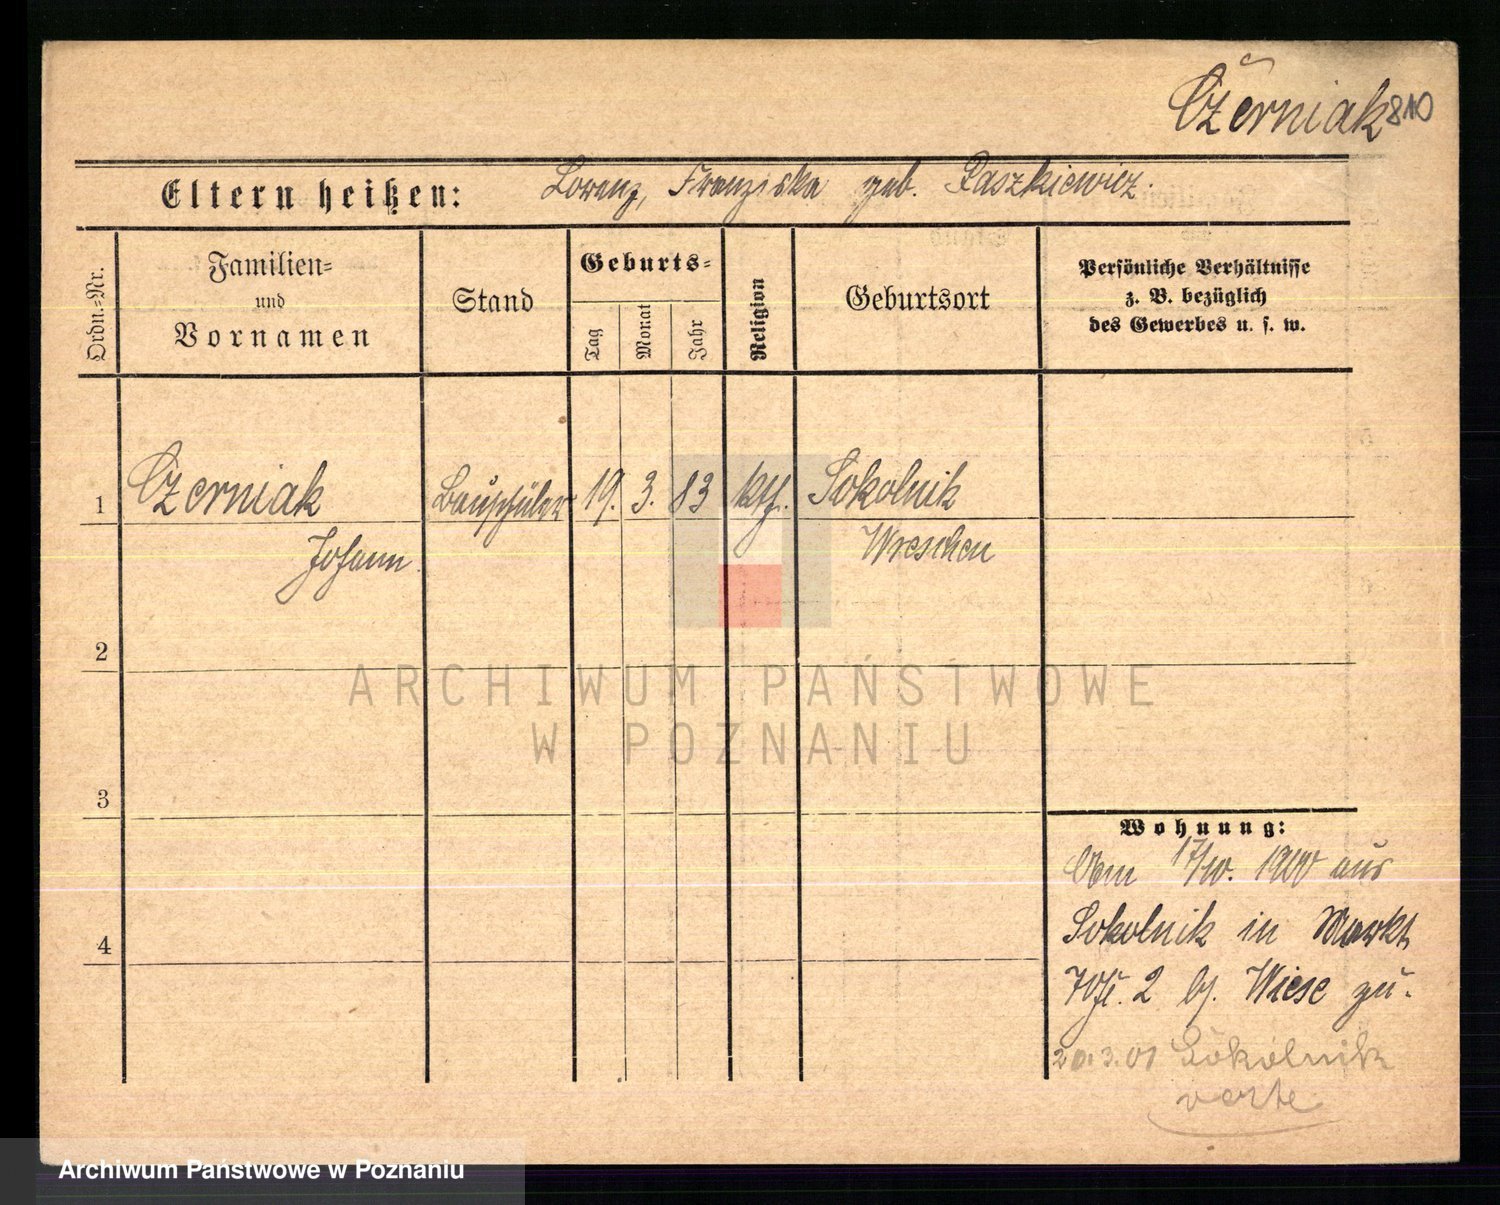 Czerniak 810
Eltern heißen: Lorenz, Franziska geb. Paszkiewicz.
Ordn.-Nr.
Familien-
und
Vornamen
Stand
Geburts-
Tag
Monat
Jahr
Religion
Geburtsort
Persönliche Verhältnisse
z. B. bezüglich
des Gewerbes u. s. w.
1 Czerniak Bauschüler 19. 3. 83 kth. Sokolnik
Johann. Wreschen
2
ARCHIWUM PAŃSTWOWE
W POZNANIU
3
Wohnung:
Am 17/10. 1900 aus
4
Sokolnik in Markt
2 bj. Wiese zu.
20.3.01 Sokolnik
verte
Archiwum Państwowe w Poznaniu